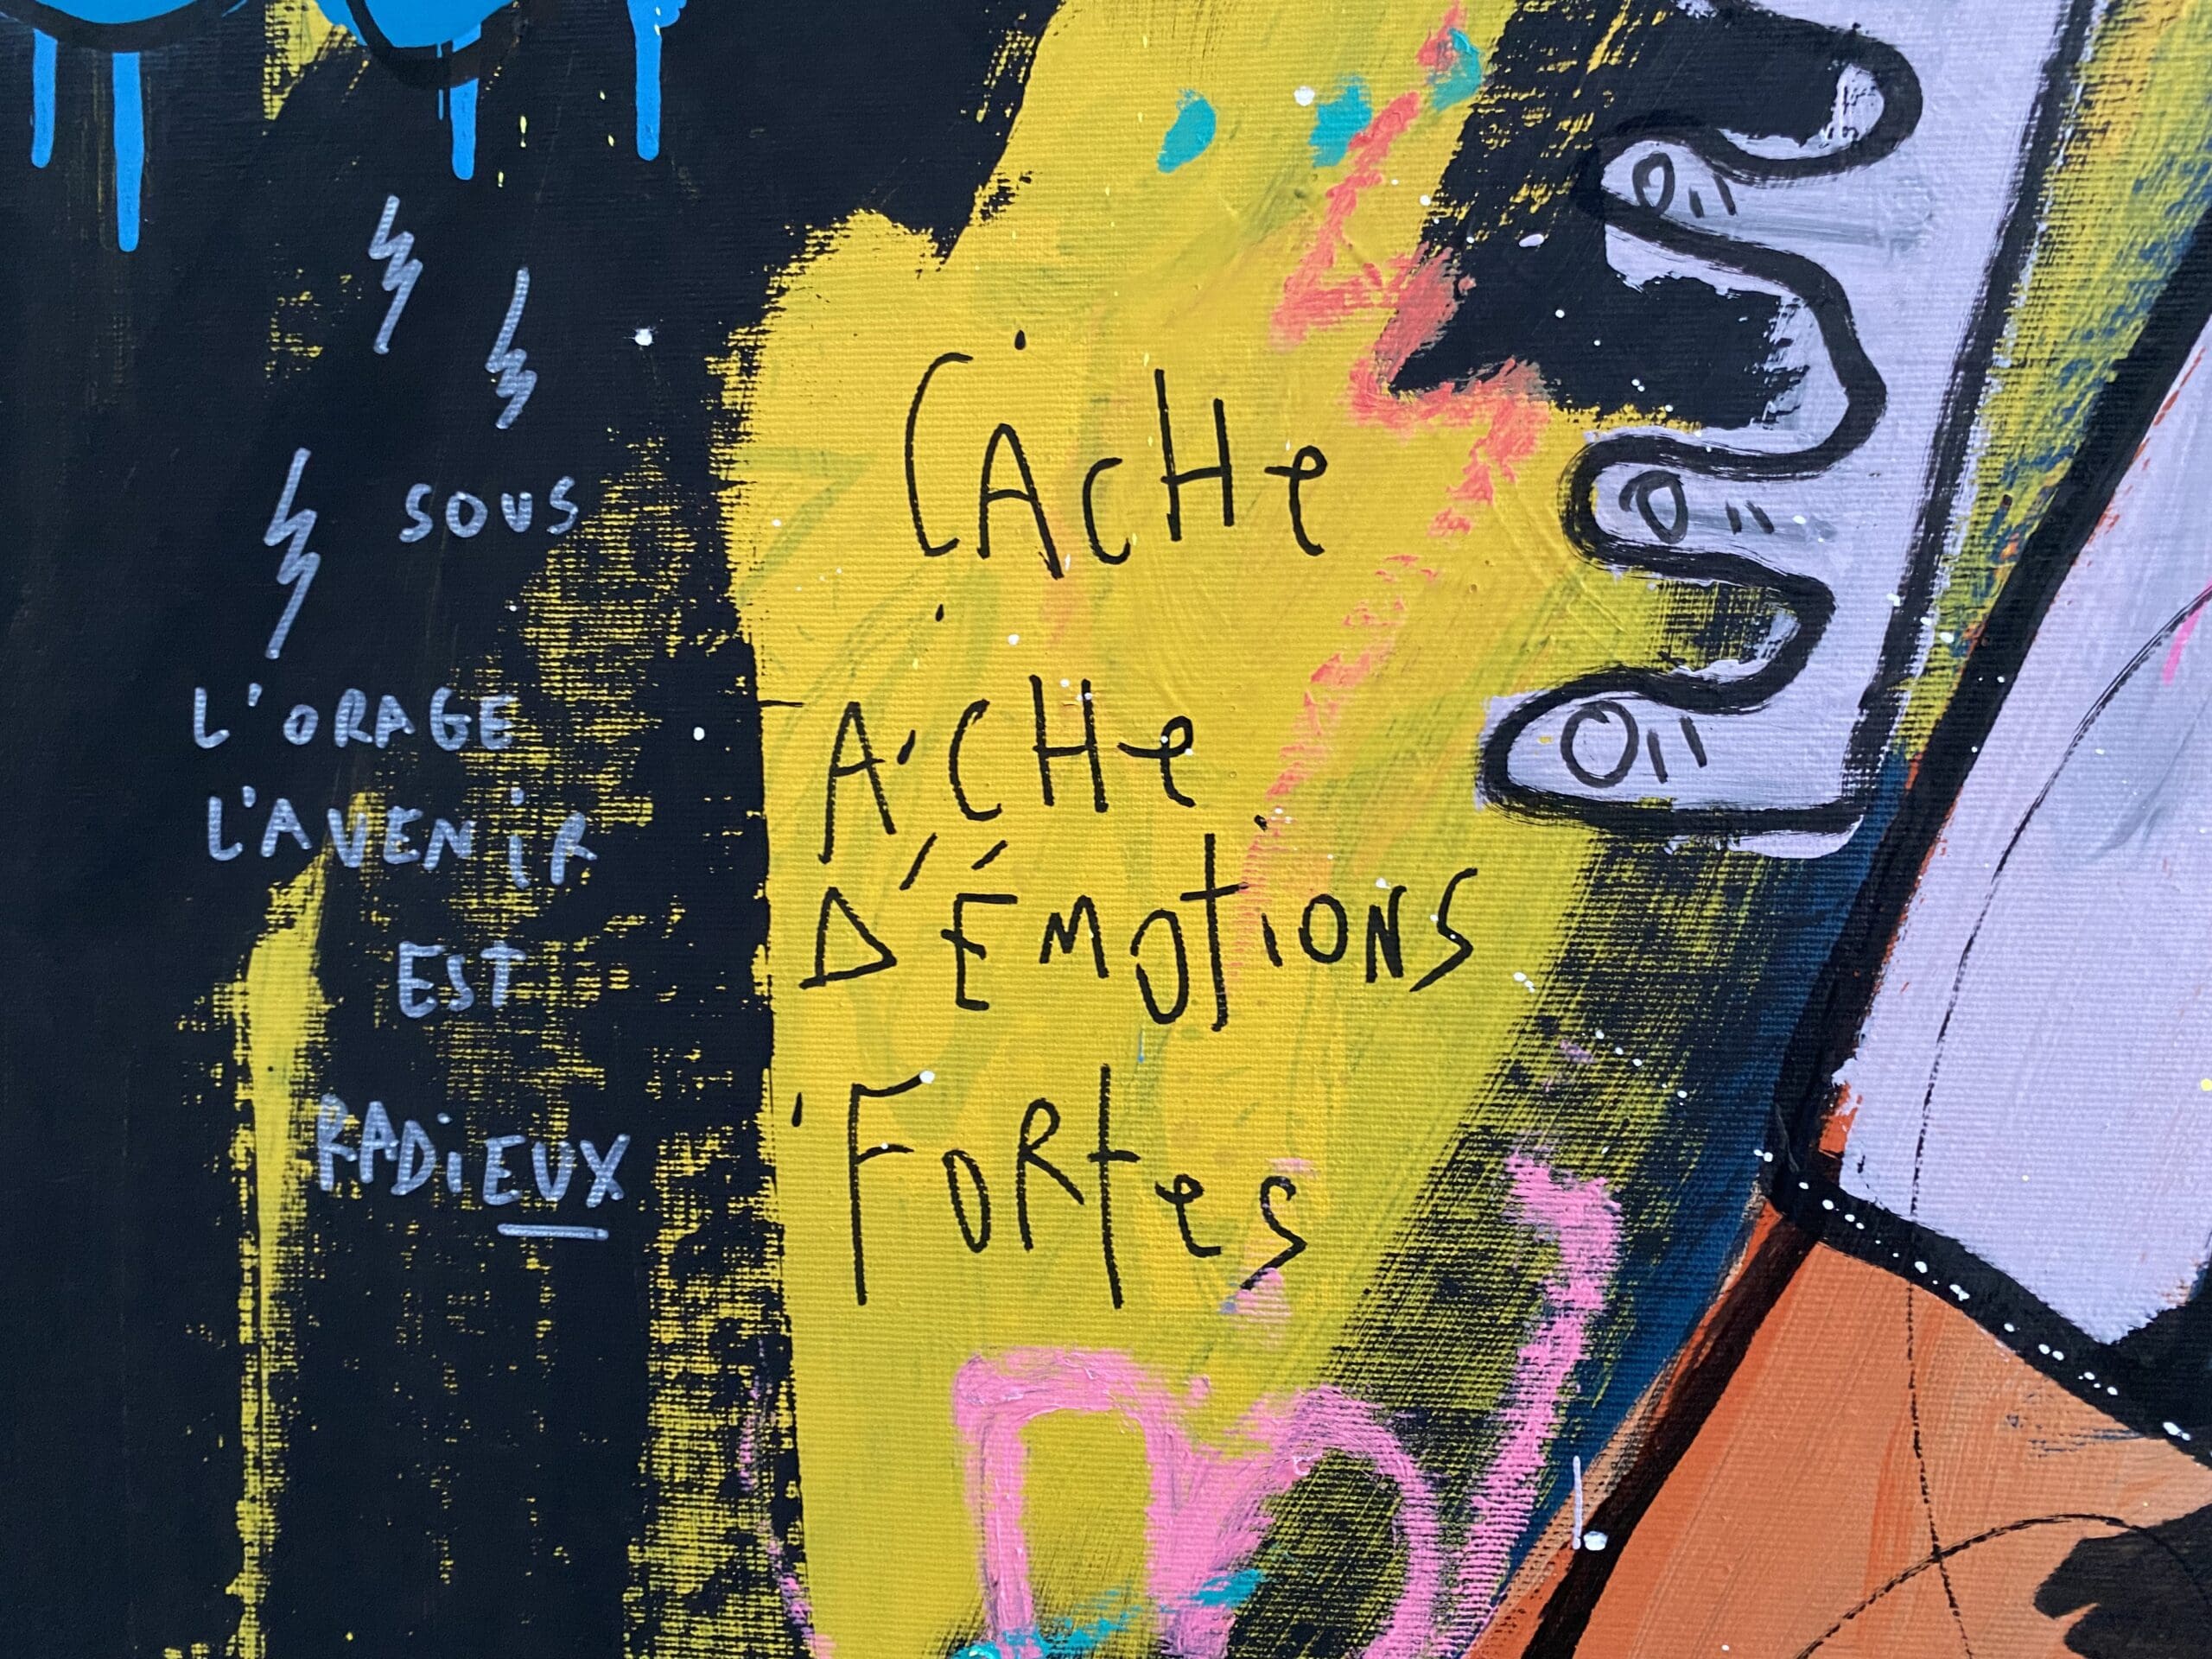 SOUS
L'ORAGE
L'AVENiR
EST
RADiEUX
CACHe
A CHe
D'ÉMOtiONS
FORtes